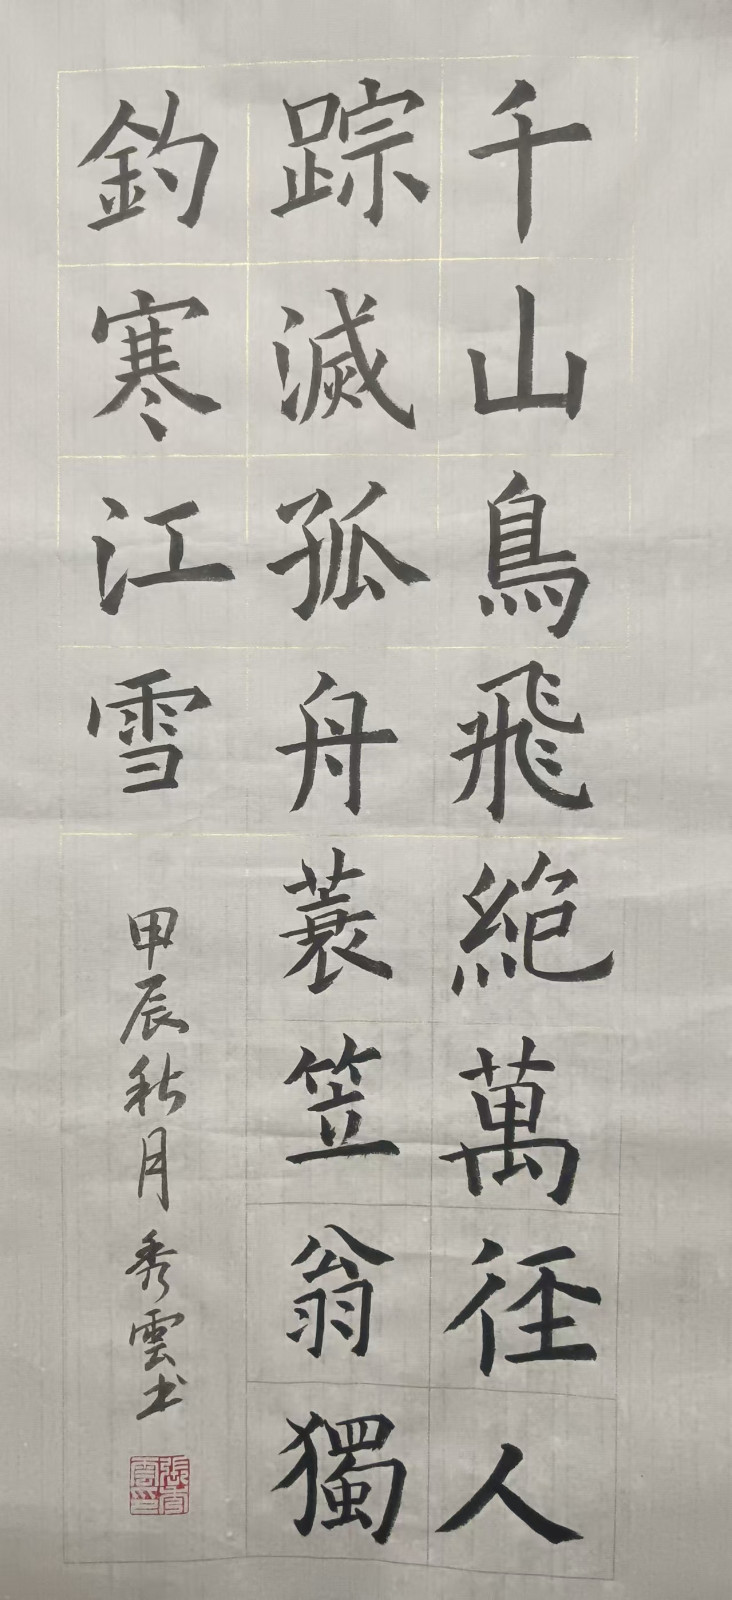 千山鳥飛絕萬径人
踪滅孤舟蓑笠翁獨
釣寒江雪
甲辰秋月秀雲书